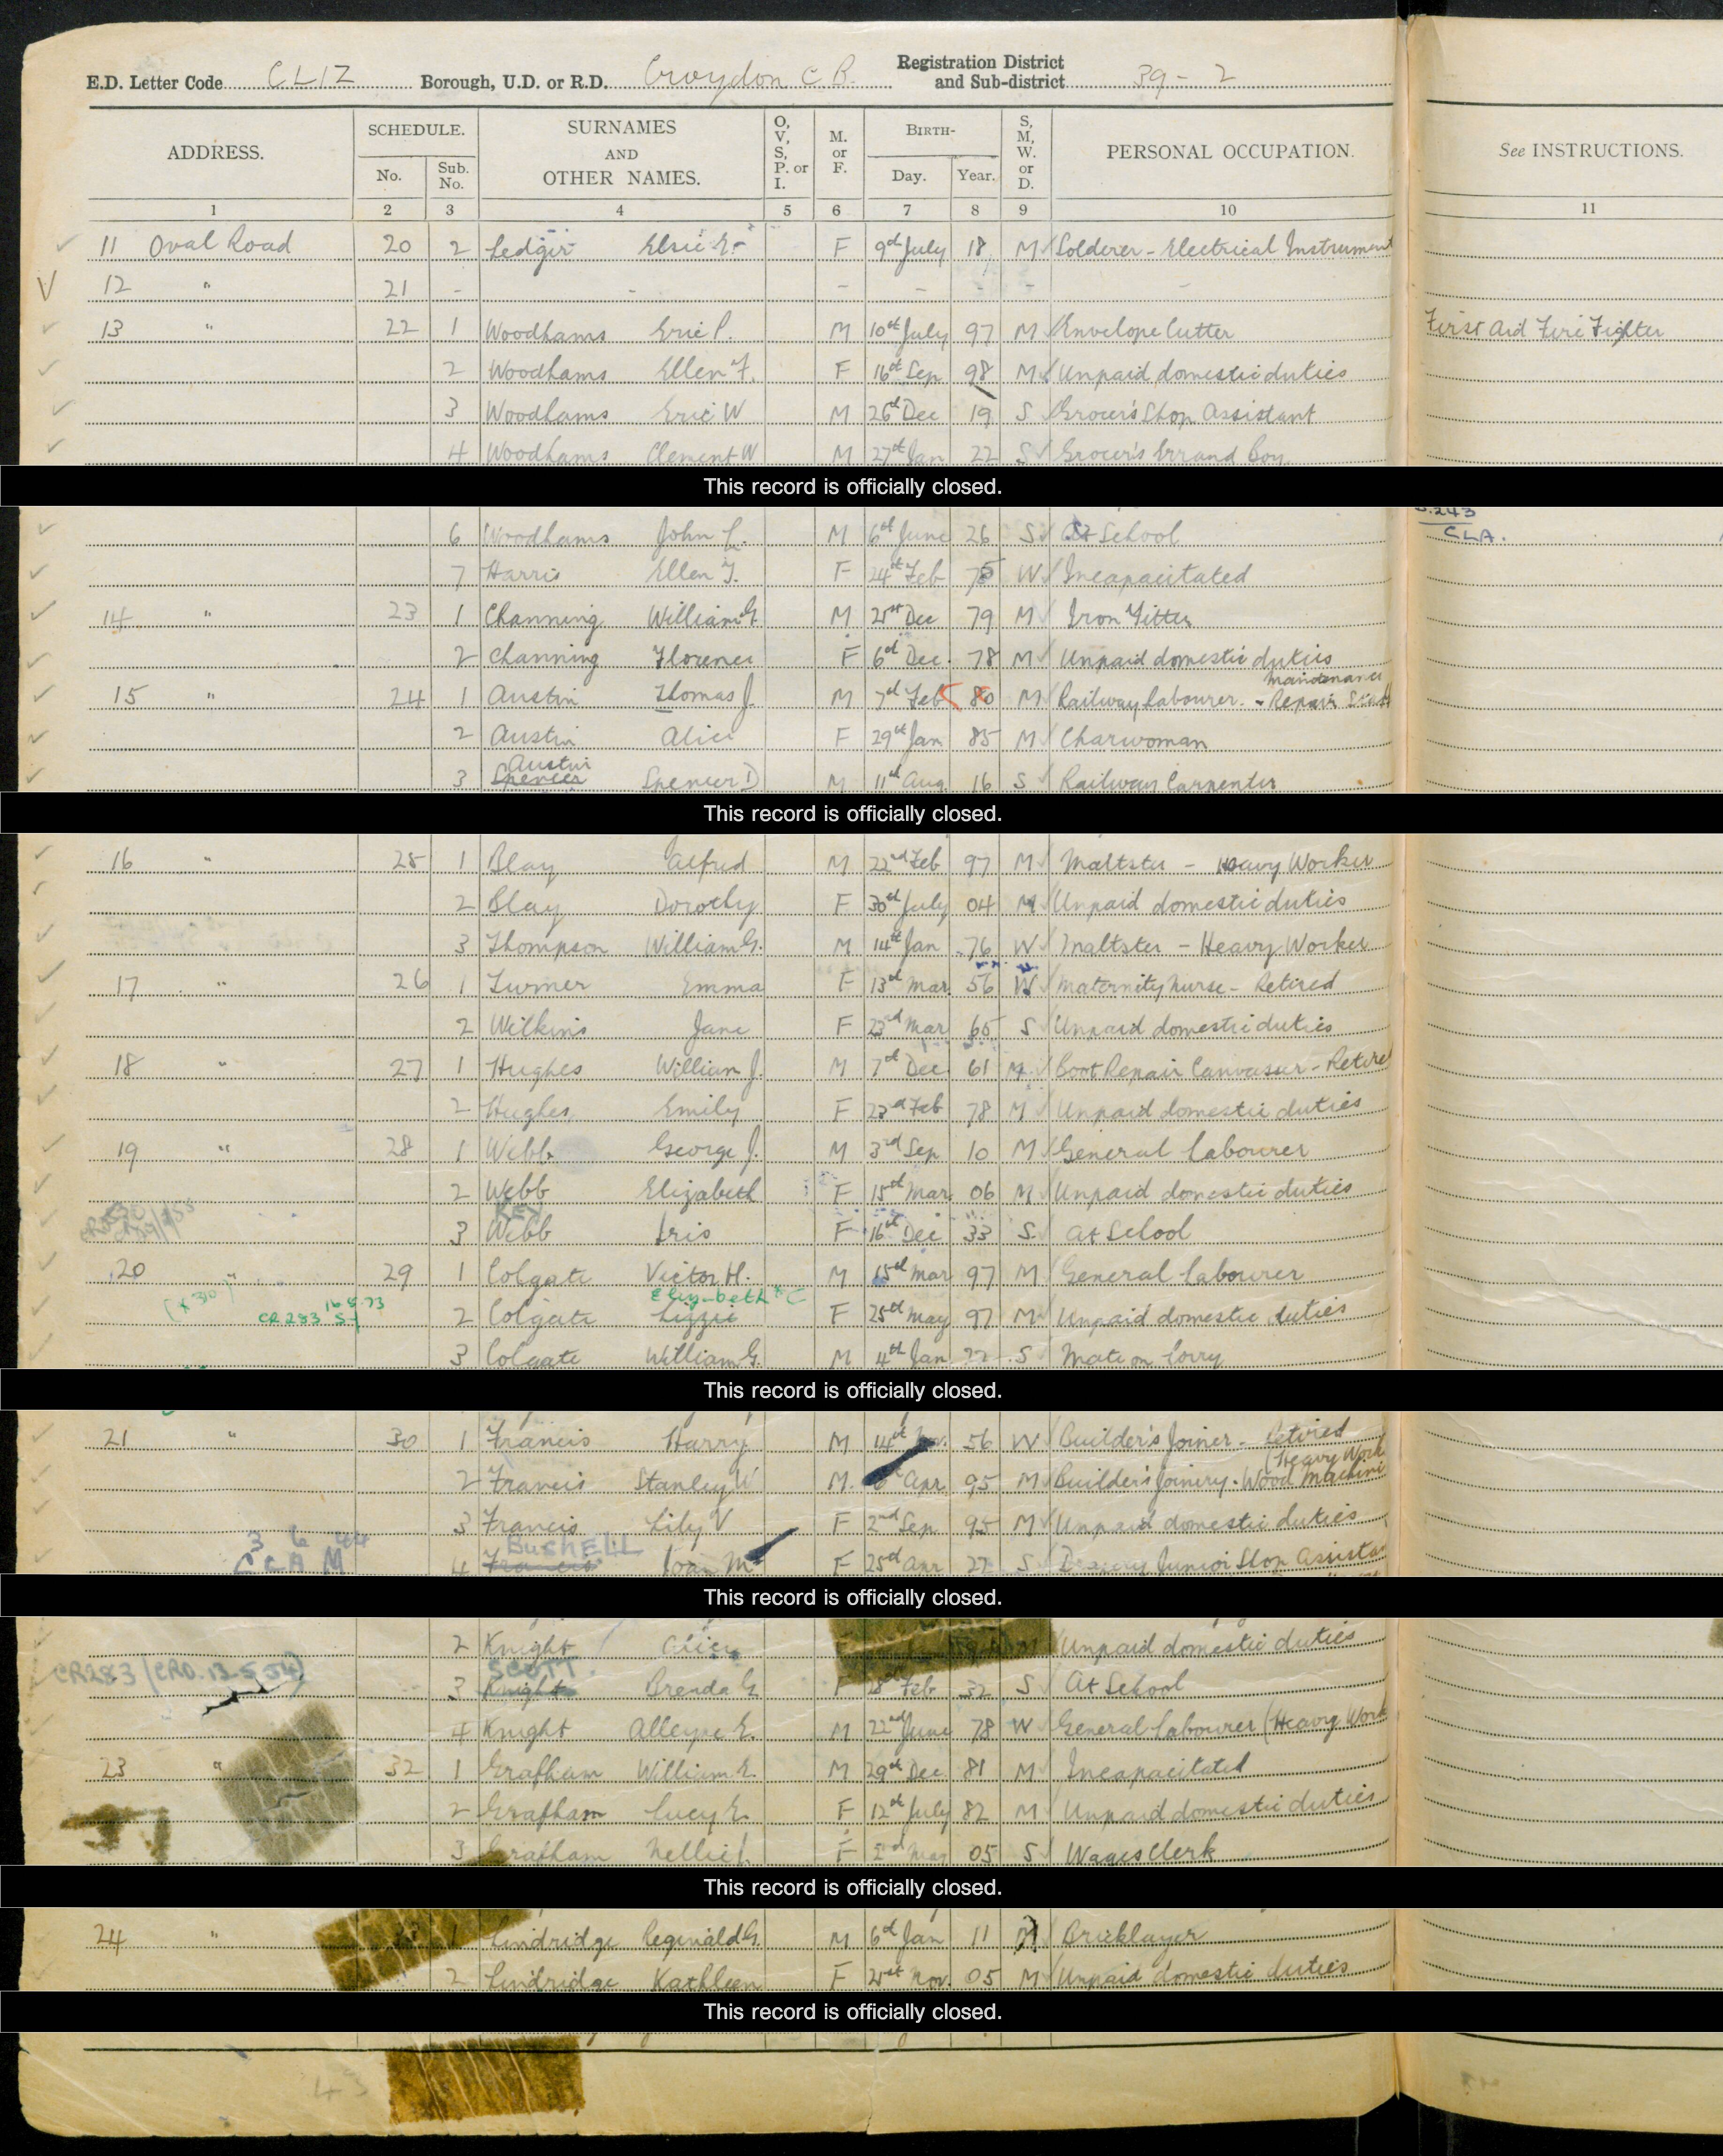 E.D. Letter Code CLIZ Borough, U.D. or R.D. Croydon C.B. Registration District and Sub-district 39-2
ADDRESS. SCHEDULE. No. Sub. No. SURNAMES AND OTHER NAMES. O, V, S, P. or I. M. or F. BIRTH- Day. Year. S, M, W. or D. PERSONAL OCCUPATION. See INSTRUCTIONS.
1 2 3 4 5 6 7 8 9 10 11
11 Oval Road 20 2 Ledger Elsie E. F 9th July 18 M Solderer - Electrical Instrument
12 " 21 - - - - - - -
13 " 22 1 Woodhams Eric P. M 10th July 97 M Envelope Cutter First Aid Fire Fighter
2 Woodhams Ellen F. F 16th Sep 98 M Unpaid domestic duties
3 Woodhams Eric W M 26th Dec 19 S Grocer's Shop Assistant
4 Woodhams Clement W M 27th Jan 22 S Grocer's Errand Boy
This record is officially closed.
6 Woodhams John L. M 6th June 26 S At School CLA.
7 Harris Ellen F. F 24th Feb W Incapacitated
14 " 23 1 Channing William G. M 25th Dec 79 M Iron Fitter
2 Channing Florence F 6th Dec. 78 M Unpaid domestic duties
15 " 24 1 Austin Thomas J. M 7th Feb 80 M Railway Labourer - Maintenance Repair
2 Austin Alice F 29th Jan 85 M Charwoman
Austin
3 Spencer Spencer D M 11th Aug 16 S Railway Carpenter
This record is officially closed.
16 " 25 1 Blay Alfred M 22nd Feb 97 M Maltster - Heavy Worker
2 Blay Dorothy F 30th July 04 M Unpaid domestic duties
3 Thompson William G. M 14th Jan 76 W Maltster - Heavy Worker
17 " 26 1 Turner Emma F 13th Mar 56 W Maternity Nurse - Retired
2 Wilkins Jane F 23rd Mar 65 S Unpaid domestic duties
18 " 27 1 Hughes William J. M 7th Dec 61 M Boot Repair Canvasser - Retired
2 Hughes Emily F 23rd Feb 78 M Unpaid domestic duties
19 " 28 1 Webb George J. M 3rd Sep 10 M General Labourer
2 Webb Elizabeth F 15th Mar 06 M Unpaid domestic duties
KEY
3 Webb Iris F 16th Dec 33 S At School
20 " 29 1 Colgate Victor H. M 15th Mar 97 M General Labourer
Elizabeth C
CR283 16.8.73 2 Colgate Lizzie F 25th May 97 M Unpaid domestic duties
3 Colgate William G. M 4th Jan 22 S Mate on Lorry
This record is officially closed.
21 " 30 1 Francis Harry M 14th Nov. 56 W Builder's Joiner - Retired
2 Francis Stanley W M Apr 95 M Builder's Joinery - Wood Machinist (Heavy Work
3 Francis Lily V F 2nd Sep 95 M Unpaid domestic duties
3 6 44 BUSHELL
CLA M 4 Francis Joan M F 25th Apr 22 S Junior Shop Assistant
This record is officially closed.
2 Knight Alice M Unpaid domestic duties
CR283 (CRO. 13.5.54) SCOTT
3 Knight Brenda E F 28th Feb 32 S At School
4 Knight Alleyne E. M 22nd June 78 W General Labourer (Heavy Work
23 " 32 1 Grafham William E. M 29th Dec 81 M Incapacitated
2 Grafham Lucy E. F 12th July 82 M Unpaid domestic duties
3 Grafham Nellie F 2nd May 05 S Wages Clerk
This record is officially closed.
24 " 1 Lindridge Reginald G. M 6th Jan 11 M Bricklayer
2 Lindridge Kathleen F 21st Nov. 05 M Unpaid domestic duties
This record is officially closed.